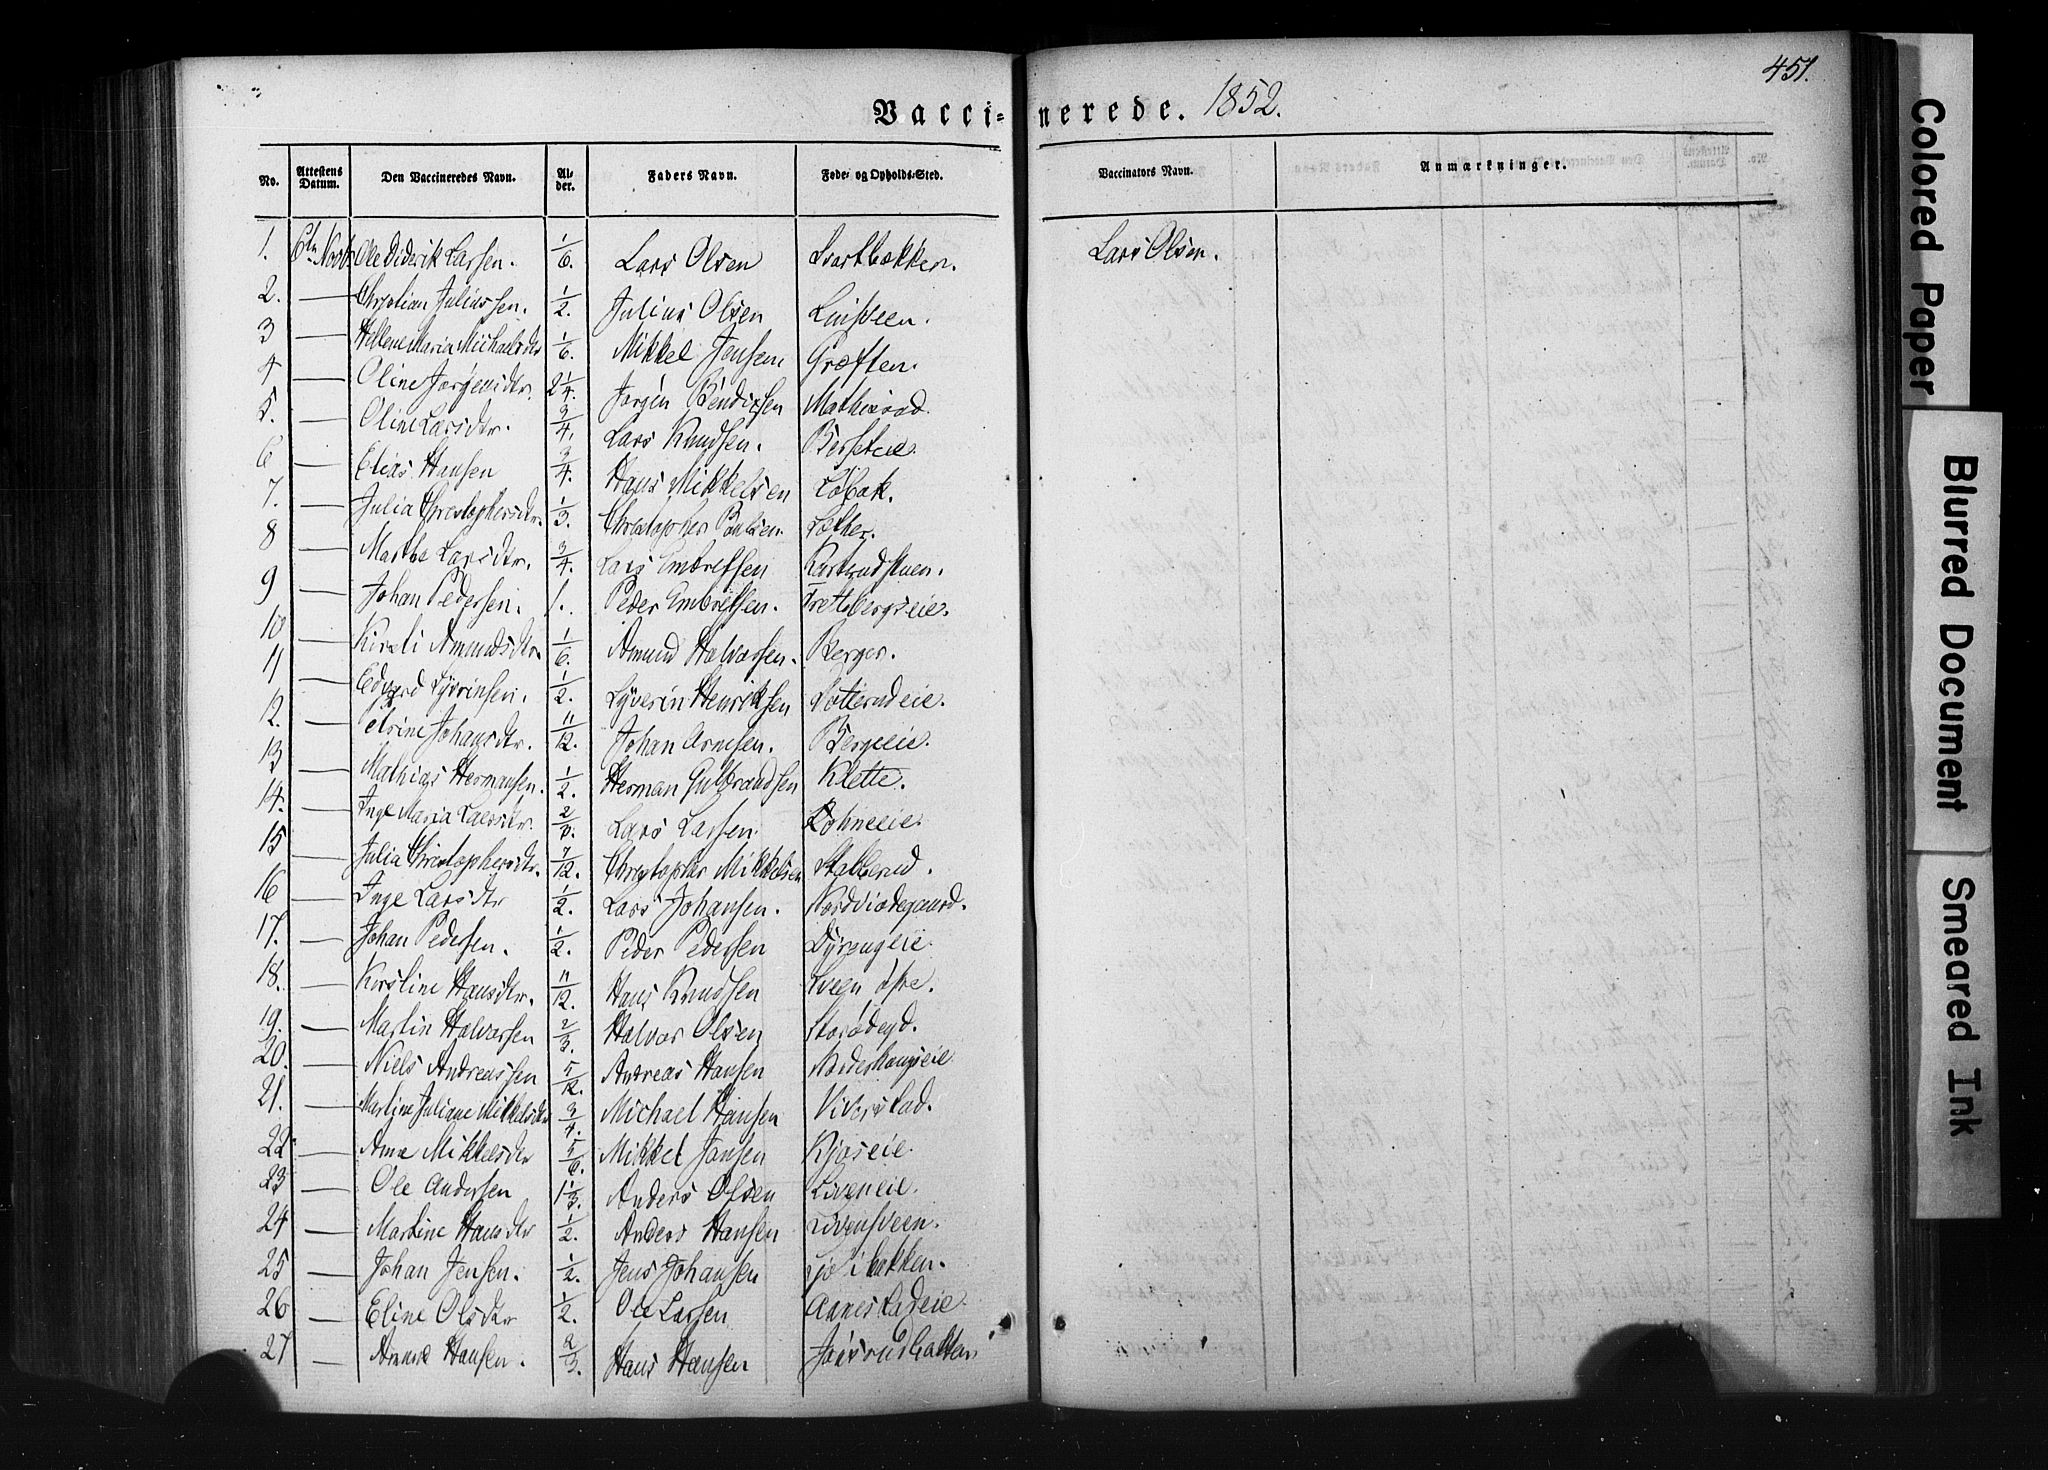 451.
Vacci= nerede. 1852.
No. Attestens Datum. Den Vaccineredes Navn. Al- der. Faders Navn. Føde- og Opholds-Sted. Vaccinators Navn. Anmærkninger.
1. 6te Novbr Ole Diderik Larsen. 1/6. Lars Olsen Svartbækken. Lars Olsen.
2. — Christian Juliussen. 1/2. Julius Olsen
3 — Hellene Maria Michaelsdtr 1/6. Mikkel Jensen Grøften.
4 — Oline Jørgensdtr. 2 1/4. Jørgen Bendixsen
5. — Oline Larsdtr. 3/4. Lars Knudsen.
6 — Elias Hansen 3/4. Hans Mikkelsen
7. — Julia Christophersdtr. 1/3. Christopher Paulsen. Sæther.
8 — Marthe Larsdtr. 3/4. Lars Embretsen
9 — Johan Pedersen. 1. Peder Embretsen. Frettebergseie.
10 — Kirsti Amundsdtr. 1/6. Amund Halvorsen. Berger.
11 — Edvard Syverinsen. 1/2. Syverin Henriksen
12. — Petrine Johansdtr. 11/12. Johan Arnesen. Bergeeie.
13 — Mathias Hermansen. 1/2. Herman Gulbrandsen Klette.
14. — Inge Maria Larsdtr. Lars Larsen
15 — Julia Christophersdtr. 7/12. Christopher Mikkelsen Stabberud.
16 — Inge Larsdtr 1/2. Lars Johansen. Nordviødegaard.
17. — Johan Pedersen. 1/2. Peder Pedersen Dyrengeie.
18. — Kirstine Hansdtr. 11/12. Hans Knudsen
19. — Martin Halvorsen 2/3. Halvor Olsen
20. — Niels Andreassen 5/12. Andreas Hansen Nordrehaugseie
21. — Martine Juliane Mikkelsdtr 3/4. Michael Hansen Viverstad.
22. — Anne Mikkelsdtr 5/6. Mikkel Jansen Kjøseie.
23 — Ole Andersen 1 1/3. Anders Olsen
24 — Martine Hansdtr 1/2. Anders Hansen
25 — Johan Jensen. 1/2. Jens Johansen
26 — Eline Olsdtr 1/2. Ole Larsen
27 — Hansen. 2/3. Hans Hansen
Colored Paper
Blurred Document
Smeared Ink